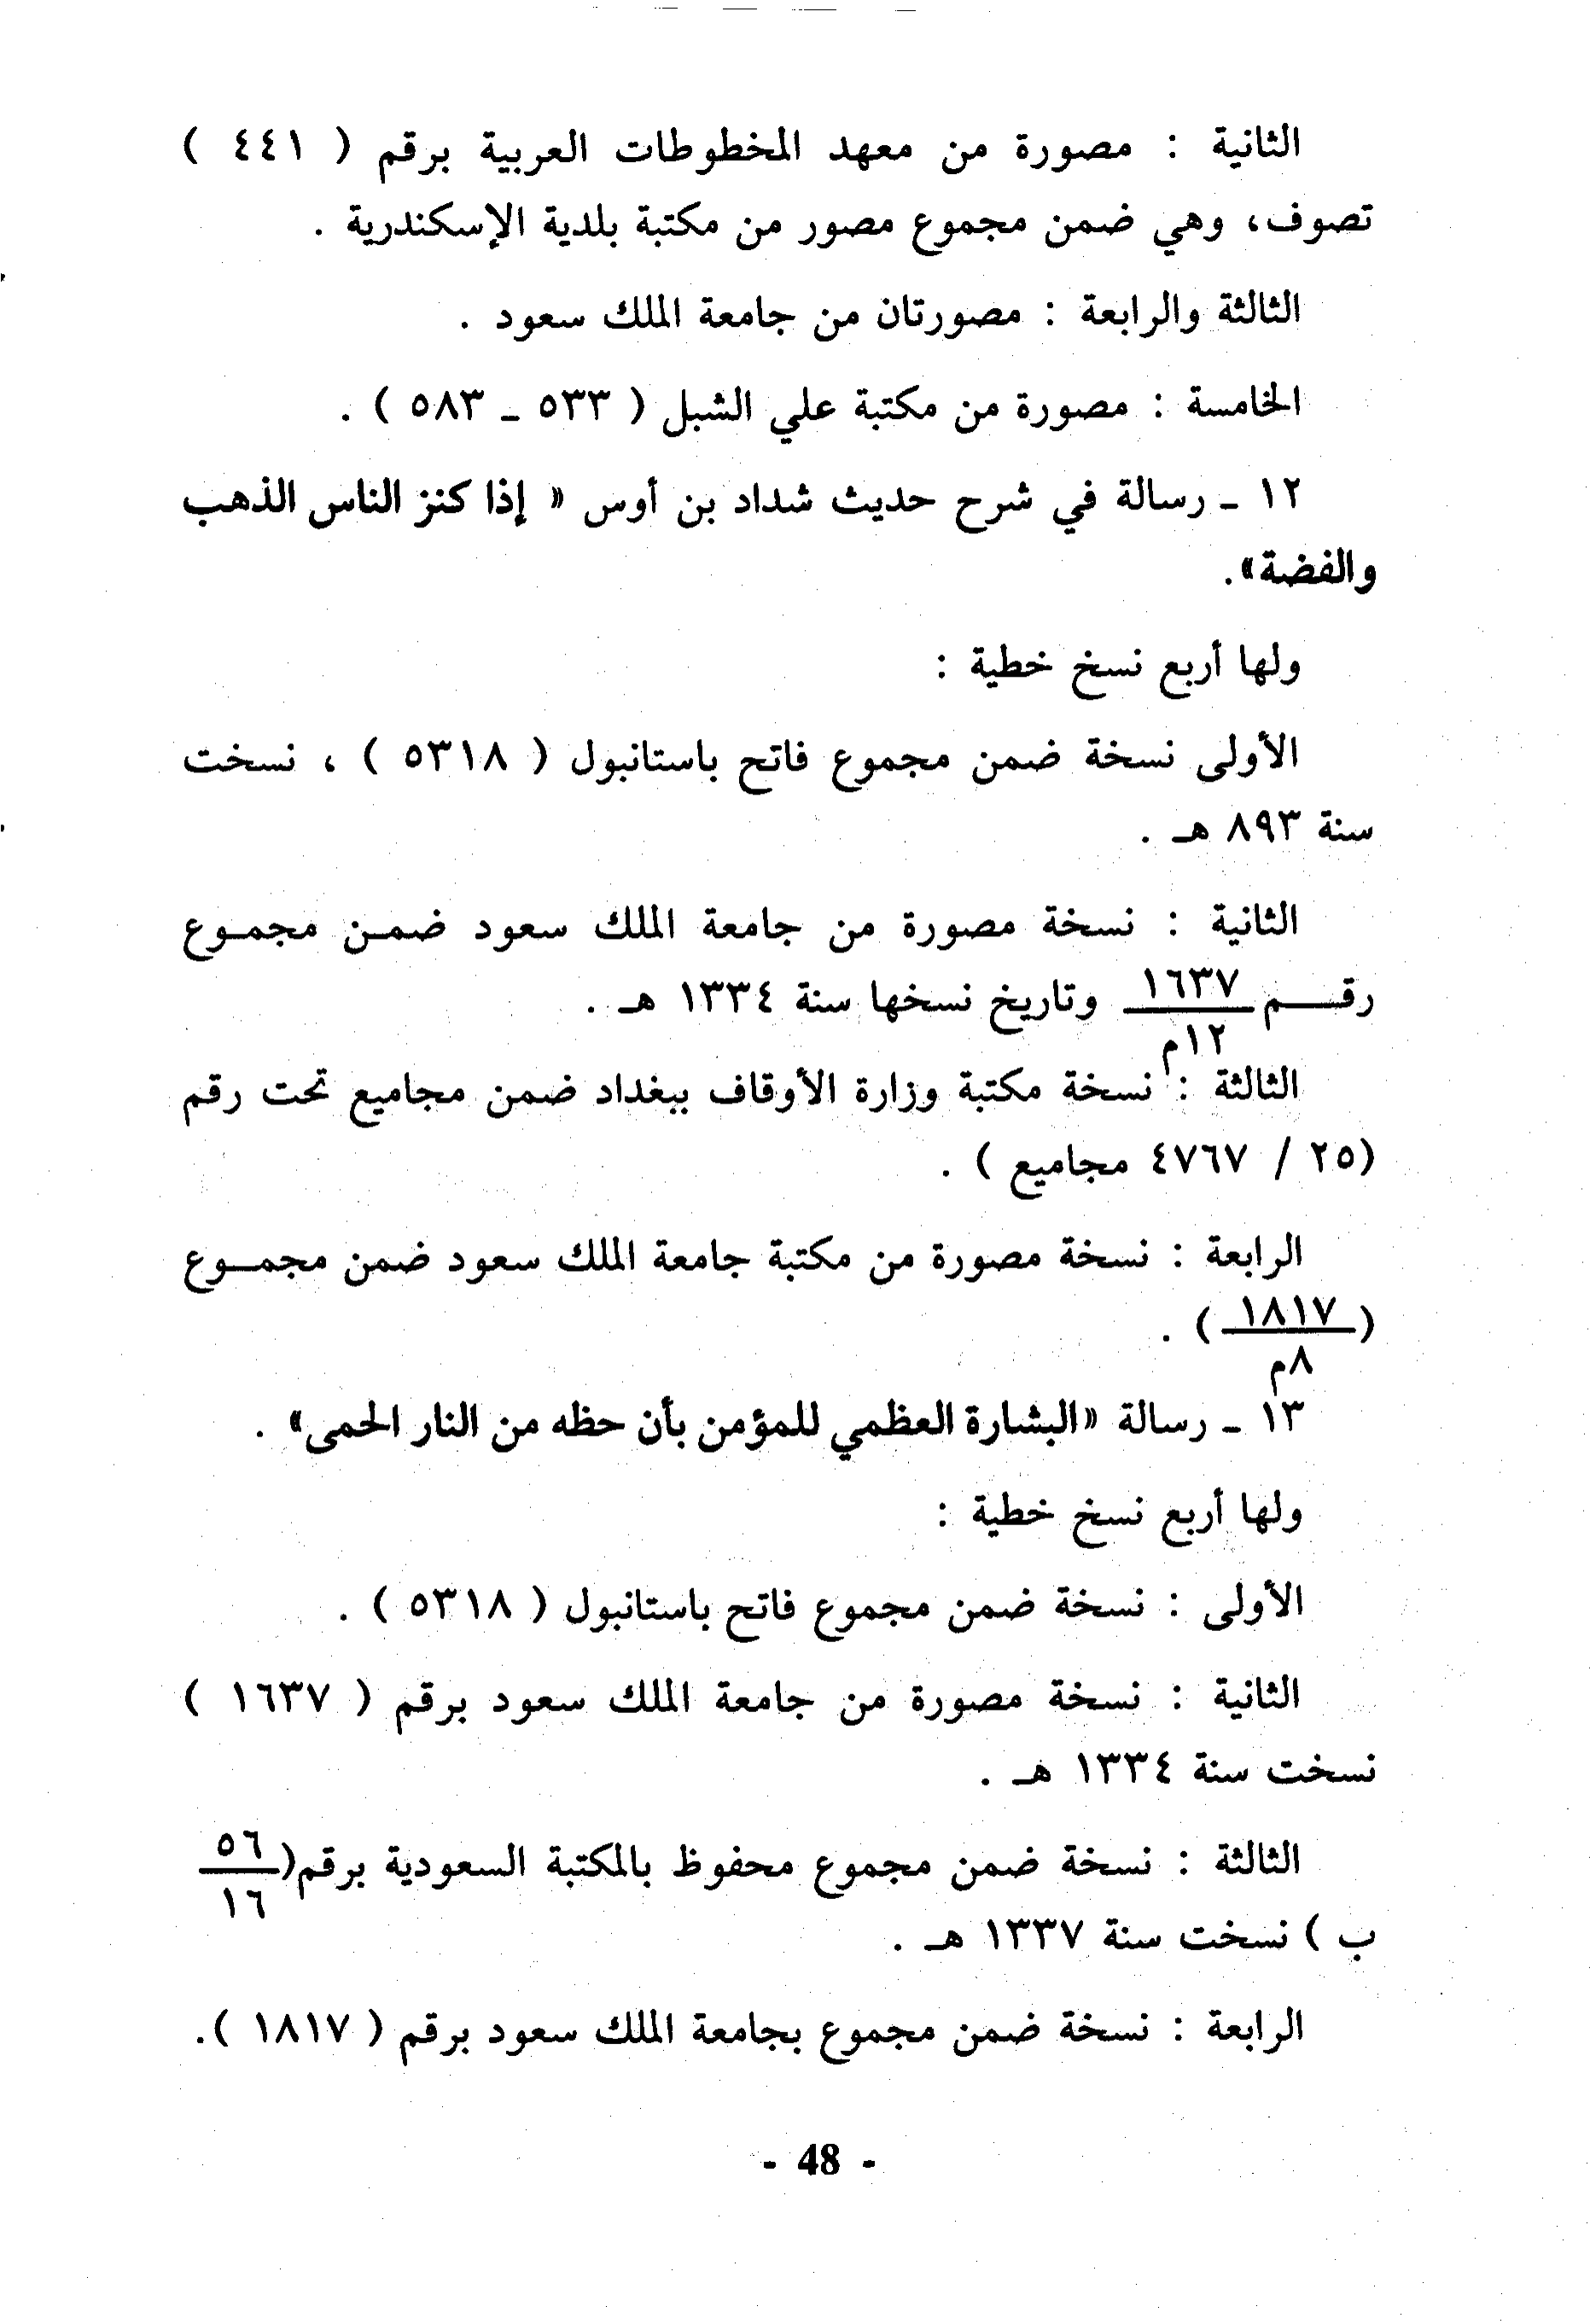 الثانية : مصورة من معهد المخطوطات العربية برقم ( ٤٤١ )
تصوف، وهي ضمن مجموع مصور من مكتبة بلدية الإسكندرية .
الثالثة والرابعة : مصورتان من جامعة الملك سعود .
الخامسة : مصورة من مكتبة علي الشبل ( ٥٣٣ ـ ٥٨٣ ) .
١٢ ـ رسالة في شرح حديث شداد بن أوس « إذا كنز الناس الذهب
والفضة».
ولها أربع نسخ خطية :
الأولى نسخة ضمن مجموع فاتح باستانبول ( ٥٣١٨ ) ، نسخت
سنة ٨٩٣ هـ .
الثانية : نسخة مصورة من جامعة الملك سعود ضمـن مجمـوع
رقـــم ١٦٣٧ وتاريخ نسخها سنة ١٣٣٤ هـ .
١٢م
الثالثة : نسخة مكتبة وزارة الأوقاف ببغداد ضمن مجاميع تحت رقم
(٢٥ / ٤٧٦٧ مجاميع ) .
الرابعة : نسخة مصورة من مكتبة جامعة الملك سعود ضمن مجمــوع
( ١٨١٧ ) .
٨م
١٣ ـ رسالة «البشارة العظمي للمؤمن بأن حظه من النار الحمى» .
ولها أربع نسخ خطية :
الأولى : نسخة ضمن مجموع فاتح باستانبول ( ٥٣١٨ ) .
الثانية : نسخة مصورة من جامعة الملك سعود برقم ( ١٦٣٧ )
نسخت سنة ١٣٣٤ هـ .
الثالثة : نسخة ضمن مجموع محفوظ بالمكتبة السعودية برقم( ٥٦
١٦
ب ) نسخت سنة ١٣٣٧ هـ .
الرابعة : نسخة ضمن مجموع بجامعة الملك سعود برقم ( ١٨١٧ ).
- 48 -